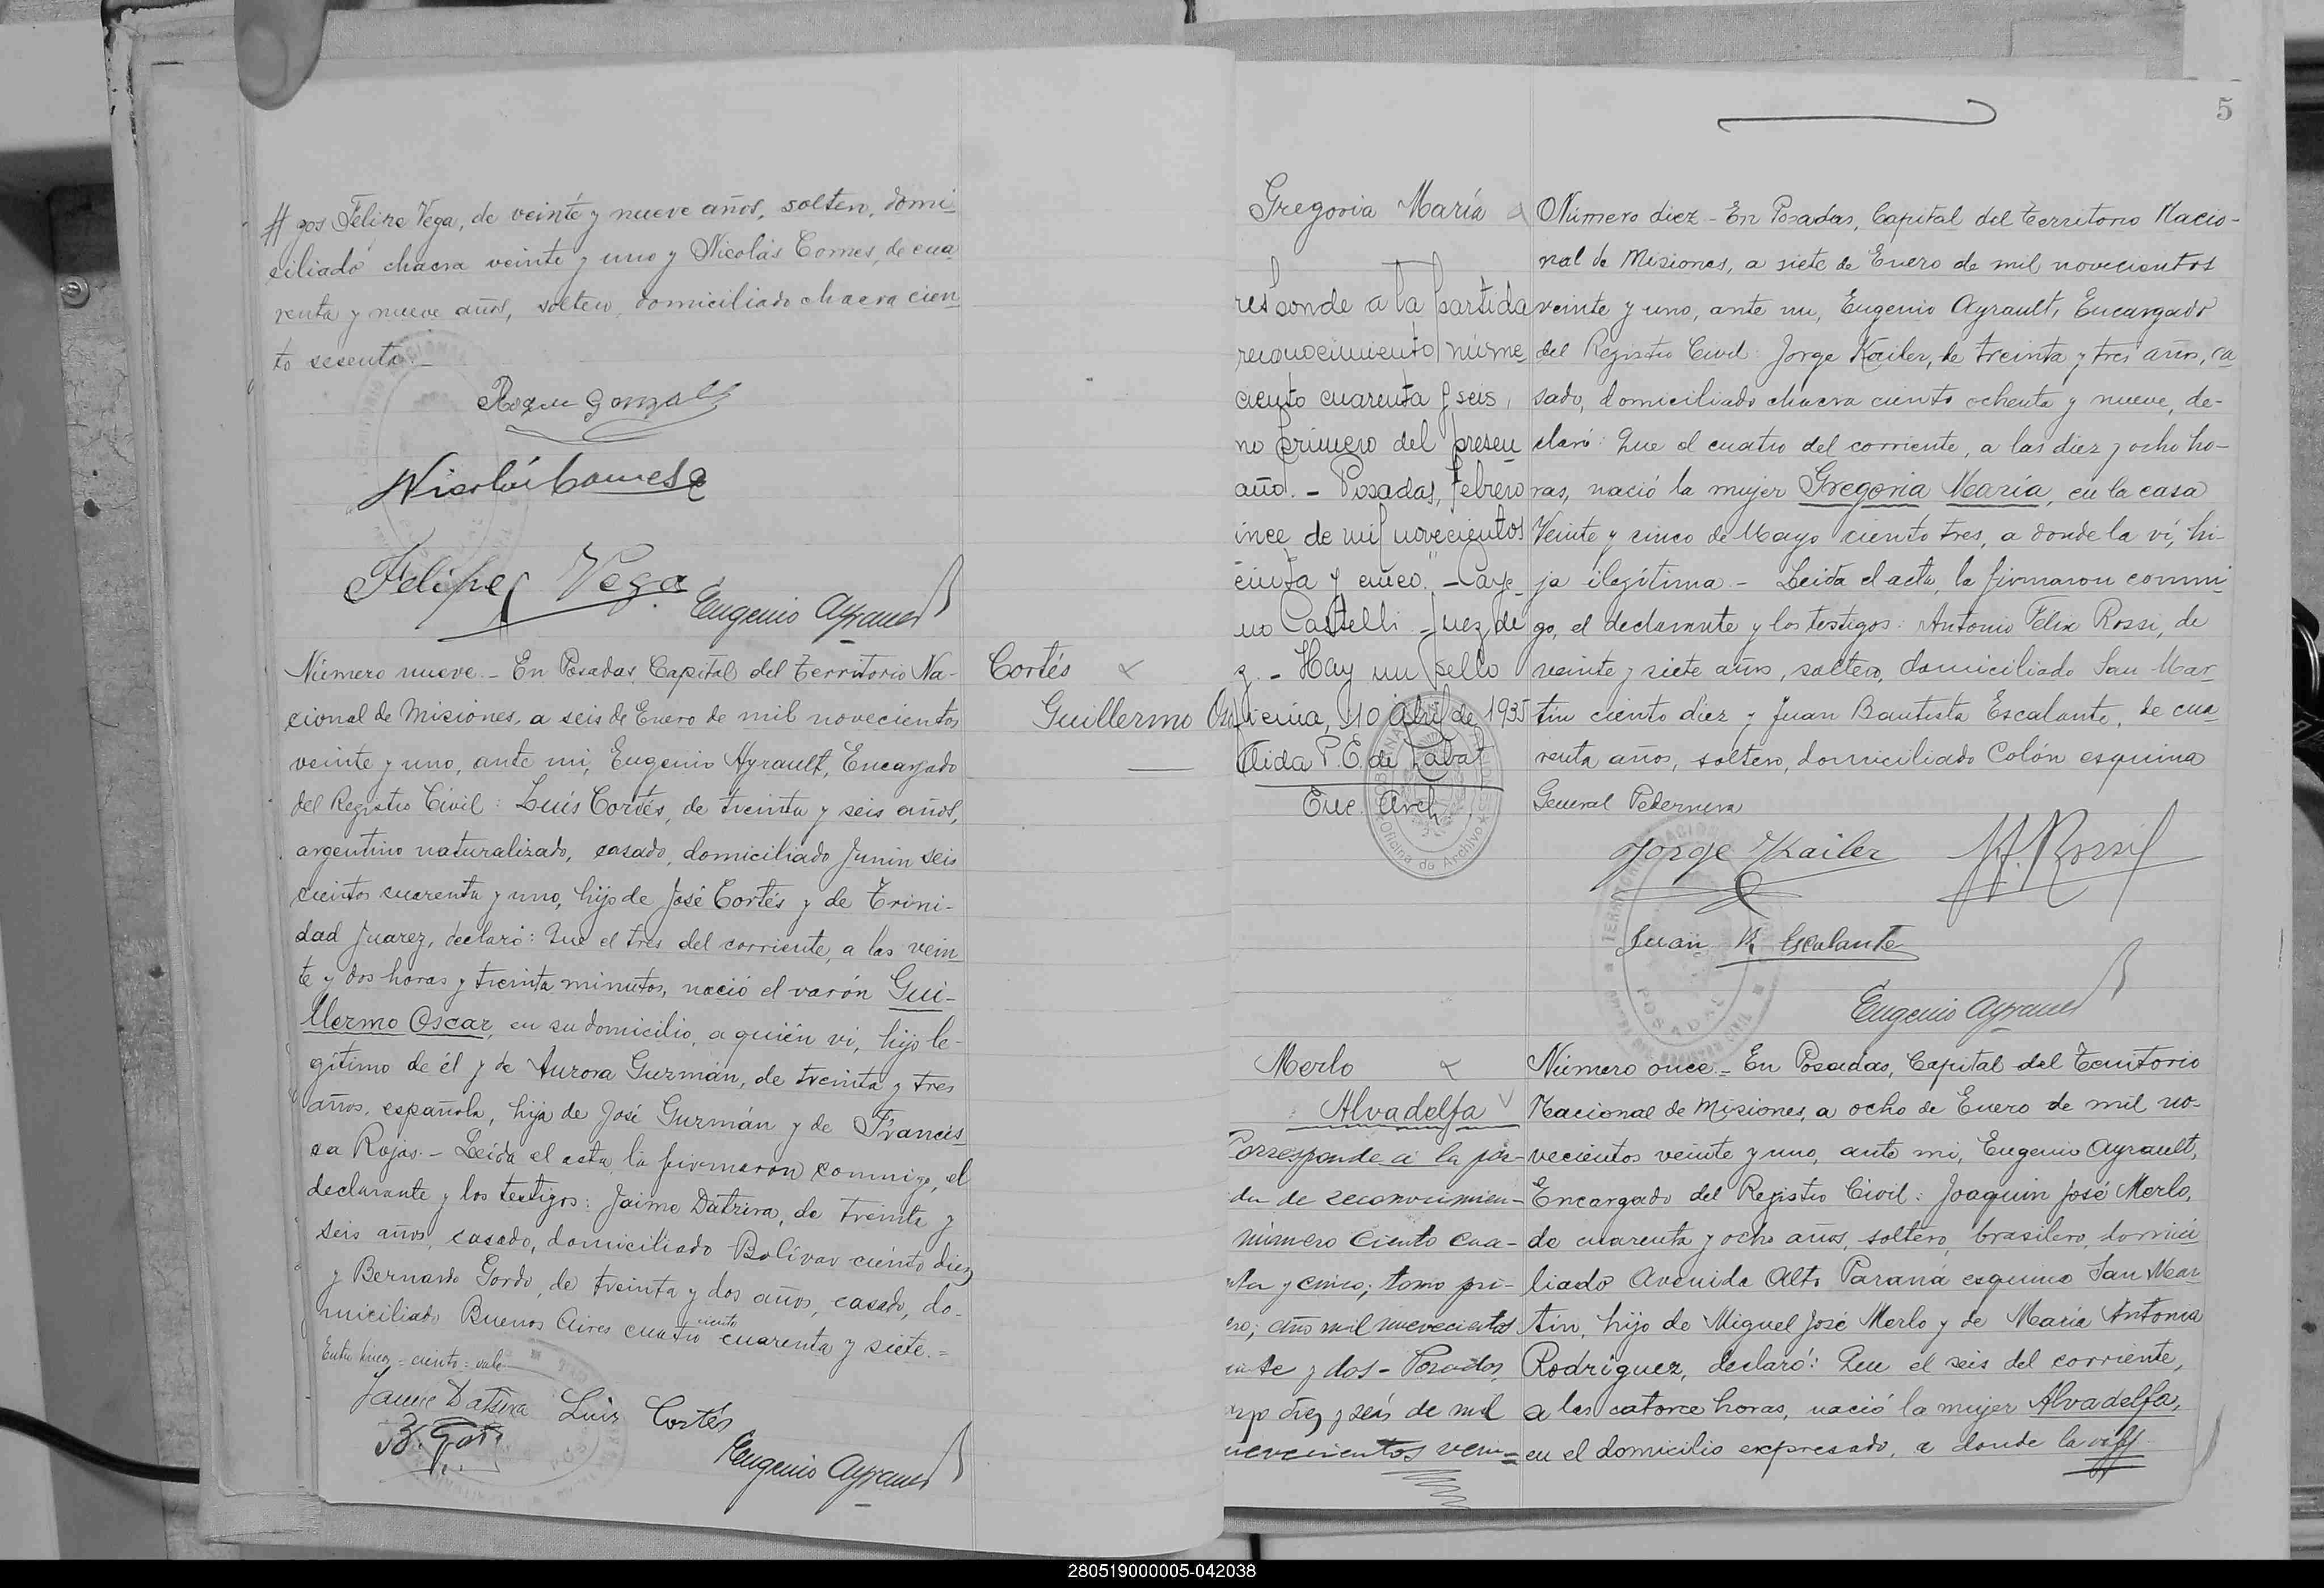 # gos Felipe Vega, de veinte y nueve años, soltero, domi-
ciliado chacra veinte y uno y Nicolás Comes, de cua
renta y nueve años, soltero, domiciliado chacra cien
to sesenta.-
Roque Gonzalez
Nicolás Comes
Felipe Vega
Eugenio Ayrault
Número nueve.- En Posadas, Capital del Territorio Na-
cional de Misiones, a seis de Enero de mil novecientos
veinte y uno, ante mi, Eugenio Ayrault, Encargado
del Registro Civil: Luis Cortés, de treinta y seis años,
argentino naturalizado, casado, domiciliado Junin seis
cientos cuarenta y uno, hijo de José Cortés y de Trini-
dad Juarez, declaró: Que el tres del corriente, a las vein
te y dos horas y treinta minutos, nació el varón Gui-
llermo Oscar, en su domicilio, a quién vi, hijo le-
gítimo de él y de Aurora Guzmán, de treinta y tres
años, española, hija de José Guzmán y de Francis
ca Rojas.- Leida el acta, la firmaron conmigo, el
declarante y los testigos: Jaime Datsira, de treinta y
seis años, casado, domiciliado Bolívar ciento diez
y Bernardo Gordo, de treinta y dos años, casado, do-
miciliado Buenos Aires cuatro ciento cuarenta y siete.=
Entre lineas = ciento = vale
Jaime Datsira Luis Cortés
Eugenio Ayrault
Cortés
Guillermo Os
5
Gregoria María
responde a la partida
reconocimiento núme-
ciento cuarenta y seis,
mo primero del presen
año.- Posadas, febrero
ince de mil novecientos
einta y cinco".- Caye-
no Castelli - Juez de
z.- Hay un sello
Oficina, 10 Abril de 1935
Elida P. E. de Labat
Enc. Arch.
Oficina de Archivo
Número diez - En Posadas, Capital del Territorio Nacio-
nal de Misiones, a siete de Enero de mil novecientos
veinte y uno, ante mi, Eugenio Ayrault, Encargado
del Registro Civil: Jorge Kailer, de treinta y tres años, ca
sado, domiciliado chacra ciento ochenta y nueve, de-
claró: Que el cuatro del corriente, a las diez y ocho ho-
ras, nació la mujer Gregoria María, en la casa
Veinte y cinco de Mayo ciento tres, a donde la vi, hi-
ja ilegítima.- Leida el acta, la firmaron conmi-
go, el declarante y los testigos: Antonio Felix Rossi, de
veinte y siete años, soltero, domiciliado San Mar-
tín ciento diez y Juan Bautista Escalante, de cua
renta años, soltero, domiciliado Colón esquina
General Pedernera
Jorge Kailer
Juan B. Escalante
Eugenio Ayrault
Merlo
Alvadelfa
Corresponde a la par-
da de reconocimien-
número ciento cua-
nta y cinco; tomo pri-
ero; año mil novecientos
inte y dos - Posadas,
diez y seis de mil
novecientos vein=
Número once.- En Posadas, Capital del Territorio
Nacional de Misiones, a ocho de Enero de mil no-
vecientos veinte y uno, ante mi, Eugenio Ayrault,
Encargado del Registro Civil: Joaquin José Merlo,
de cuarenta y ocho años, soltero, brasilero, domici
liado Avenida Alto Paraná esquina San Mar
tín, hijo de Miguel José Merlo y de María Antonia
Rodriguez, declaró: Que el seis del corriente,
a las catorce horas, nació la mujer Alvadelfa,
en el domicilio expresado, a donde la vi #
280519000005-042038